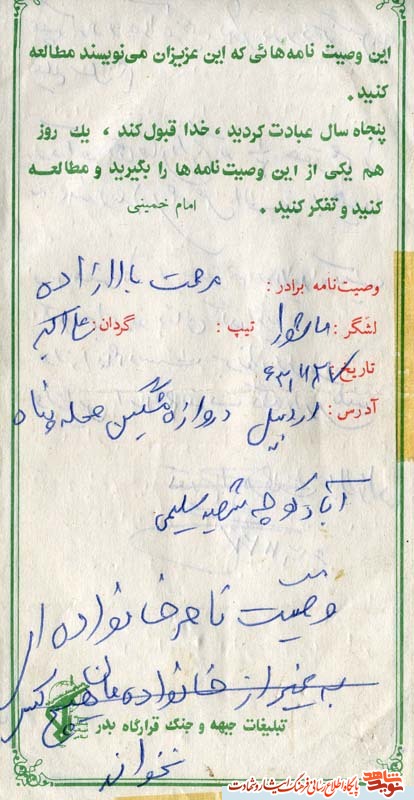 این وصیت نامه‌هائی که این عزیزان می‌نویسند مطالعه
کنید.
پنجاه سال عبادت کردید، خدا قبول کند، یك روز
هم یکی از این وصیت‌نامه ها را بگیرید و مطالعه
کنید و تفکر کنید. امام خمینی
وصیت‌نامه برادر: رحمت بالازاده
لشگر: عاشورا تیپ: گردان: علی اکبر
تاریخ:
آدرس: اردبیل دروازه مشگین محله پناه
آباد کوچه شهید سلیمی
وصیت نامه خانواده
به غیر از خانواده‌مان هیچ کس
تبلیغات جبهه و جنگ قرارگاه بدر
نخواند
نوید شاهد
پایگاه اطلاع رسانی فرهنگ ایثار و شهادت